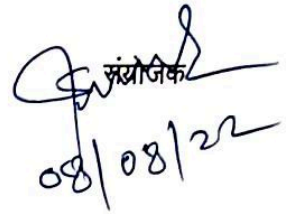 संयोजक
08/08/22